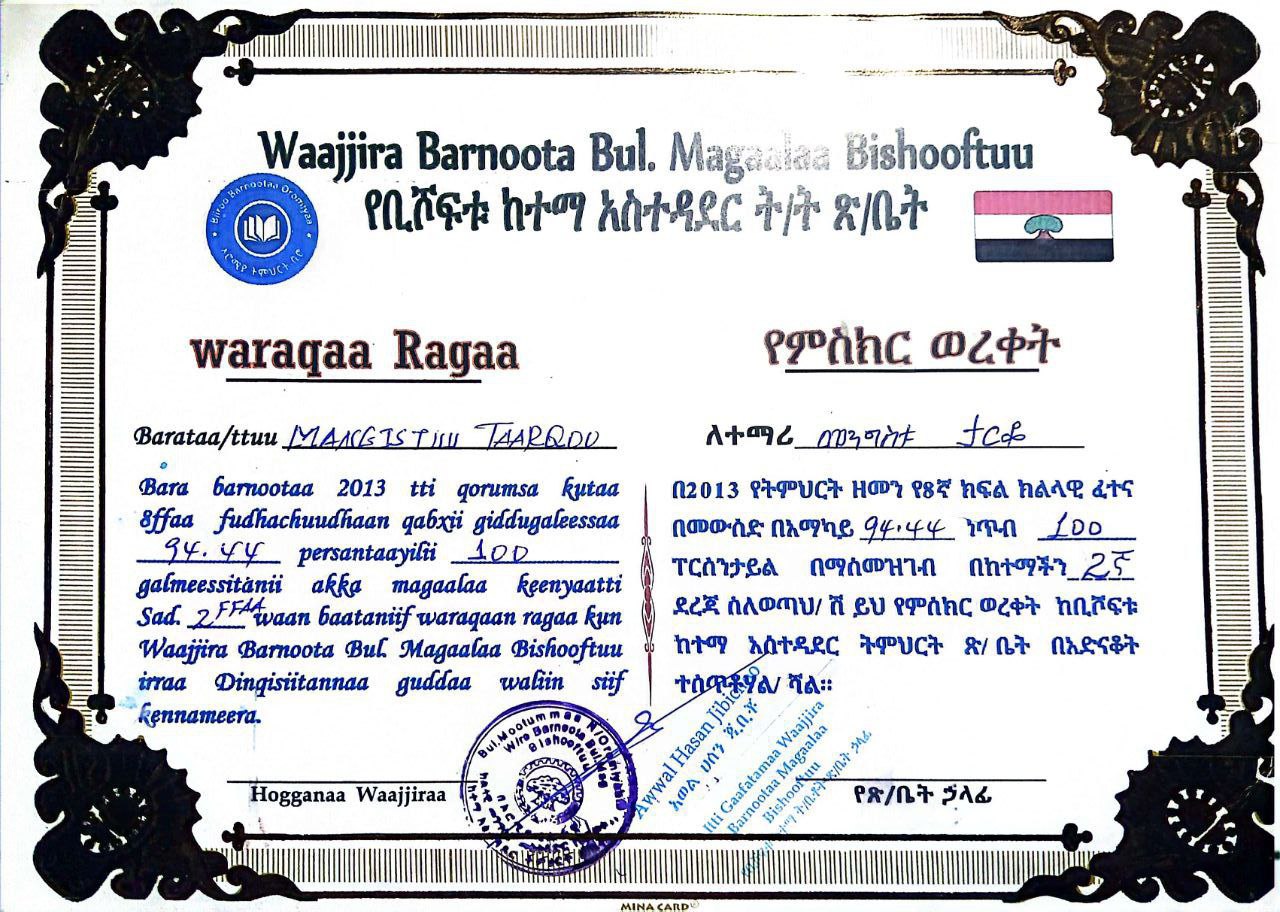 Waajjira Barnoota Bul. Magaalaa Bishooftuu
የቢሾፍቱ ከተማ አስተዳደር ት/ት ጽ/ቤት
Biiroo Barnootaa Oromiyaa
ኦሮሚያ ትምህርት ቢሮ
waraqaa Ragaa
Barataa/ttuu MANGISTUU TAARQOO
Bara barnootaa 2013 tti qorumsa kutaa
8ffaa fudhachuudhaan qabxii giddugaleessaa
94.44 persantaayilii 100
galmeessitanii akka magaalaa keenyaatti
Sad. 2FFAA waan baataniif waraqaan ragaa kun
Waajjira Barnoota Bul. Magaalaa Bishooftuu
irraa Dinqisiitannaa guddaa waliin siif
kennameera.
Hogganaa Waajjiraa
የምስክር ወረቀት
ለተማሪ መንግስቱ ታርቆ
በ2013 የትምህርት ዘመን የ8ኛ ክፍል ክልላዊ ፈተና
በመውሰድ በአማካይ 94.44 ነጥብ 100
ፐርሰንታይል በማስመዝገብ በከተማችን 2ኛ
ደረጃ ስለወጣህ/ ሽ ይህ የምስክር ወረቀት ከቢሾፍቱ
ከተማ አስተዳደር ትምህርት ጽ/ ቤት በአድናቆት
ተሰጥቶሃል/ ሻል።
የጽ/ቤት ኃላፊ
Bul.Mootummaa N/Oromiyaa
W/ra Barnoota Bul.Mag
Bishooftuu
Awwal Hasan Jibicho
አወል ሀሰን ጂቢቾ
Itti Gaafatamaa Waajjira
Barnootaa Magaalaa
Bishooftuu
MINA CARD